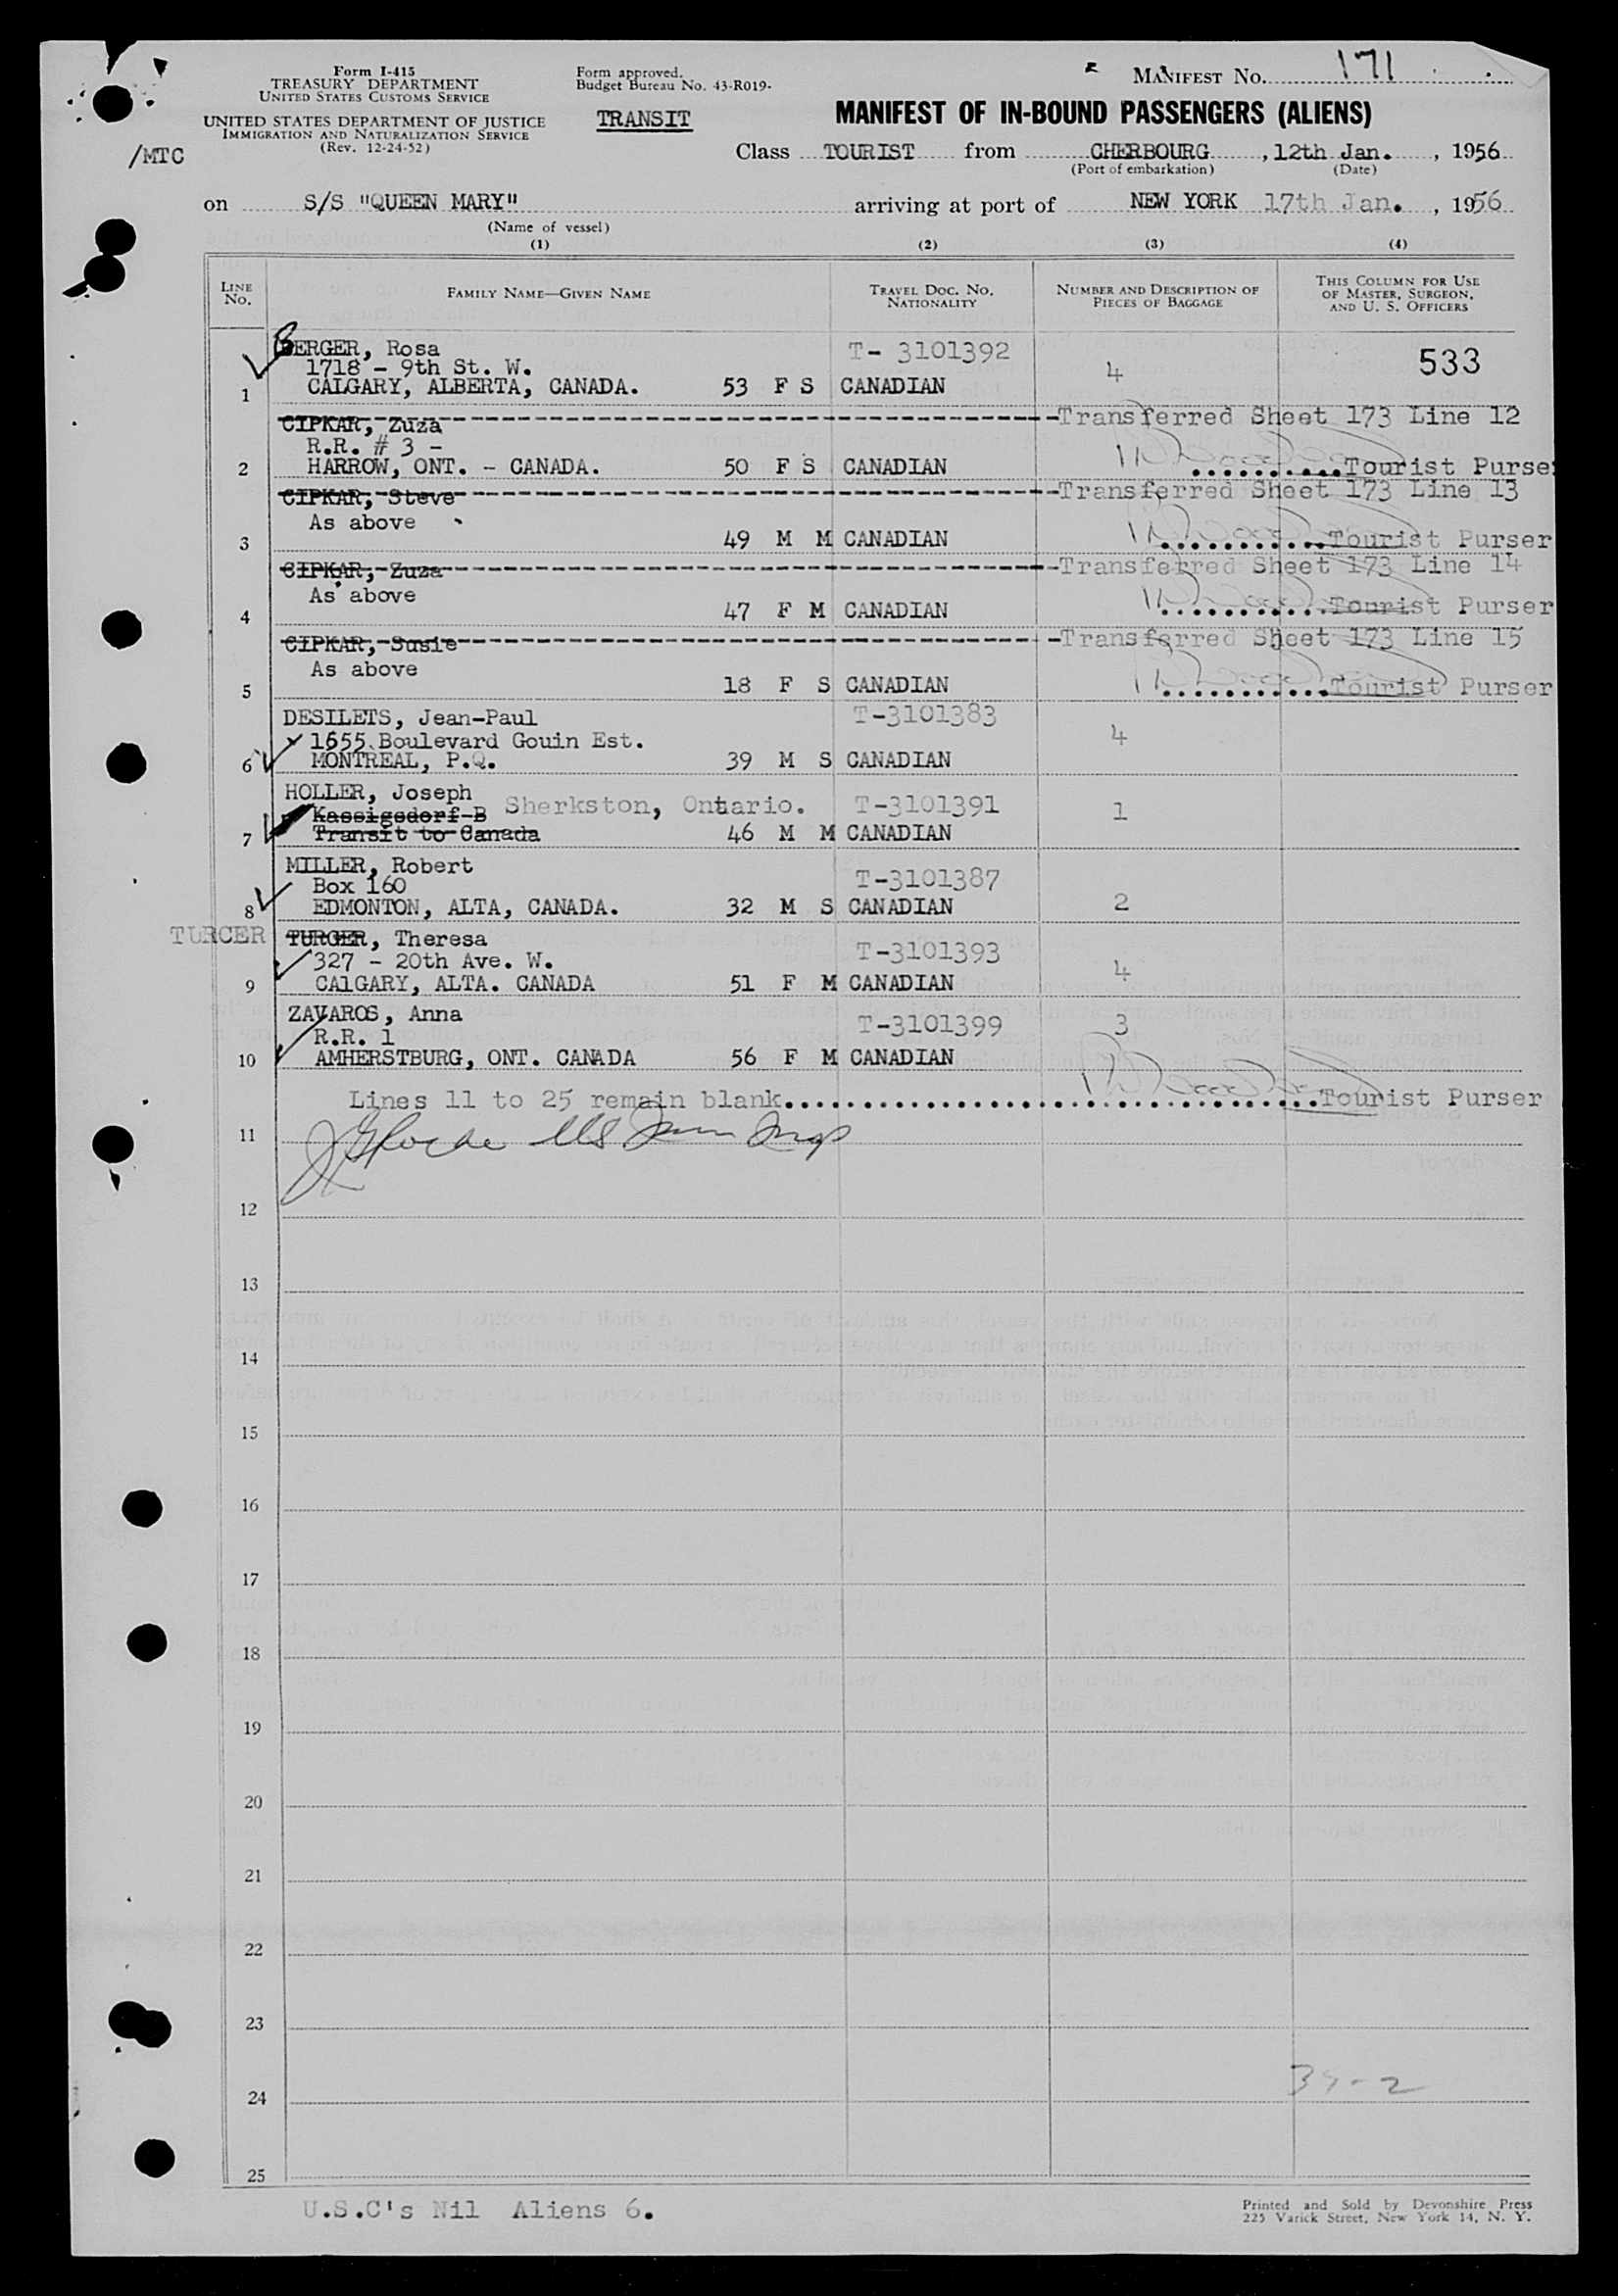 Form I-415
TREASURY DEPARTMENT
UNITED STATES CUSTOMS SERVICE
UNITED STATES DEPARTMENT OF JUSTICE
IMMIGRATION AND NATURALIZATION SERVICE
(Rev. 12-24-52)
/MTC
Form approved.
Budget Bureau No. 43-R019-
TRANSIT
MANIFEST No. 171
MANIFEST OF IN-BOUND PASSENGERS (ALIENS)
Class TOURIST from CHERBOURG, 12th Jan., 1956
(Port of embarkation) (Date)
on S/S "QUEEN MARY" arriving at port of NEW YORK 17th Jan., 1956
(Name of vessel)
(1) (2) (3) (4)
LINE No. FAMILY NAME—GIVEN NAME TRAVEL DOC. No. NATIONALITY NUMBER AND DESCRIPTION OF PIECES OF BAGGAGE THIS COLUMN FOR USE OF MASTER, SURGEON, AND U. S. OFFICERS
BERGER, Rosa T- 3101392 533
1718 - 9th St. W. 4
1 CALGARY, ALBERTA, CANADA. 53 F S CANADIAN
CIPKAR, Zuza Transferred Sheet 173 Line 12
R.R. # 3 -
2 HARROW, ONT. - CANADA. 50 F S CANADIAN ..........Tourist Purser
CIPKAR, Steve Transferred Sheet 173 Line 13
As above
3 49 M M CANADIAN ...........Tourist Purser
CIPKAR, Zuza Transferred Sheet 173 Line 14
As above
4 47 F M CANADIAN ...........Tourist Purser
CIPKAR, Susie Transferred Sheet 173 Line 15
As above
5 18 F S CANADIAN ...........Tourist Purser
DESILETS, Jean-Paul T-3101383
1655 Boulevard Gouin Est. 4
6 MONTREAL, P.Q. 39 M S CANADIAN
HOLLER, Joseph
Kassigsdorf-B Sherkston, Ontario. T-3101391 1
7 Transit to Canada 46 M M CANADIAN
MILLER, Robert
Box 160 T-3101387
8 EDMONTON, ALTA, CANADA. 32 M S CANADIAN 2
TURCER TURGER, Theresa
327 - 20th Ave. W. T-3101393 4
9 CAlGARY, ALTA. CANADA 51 F M CANADIAN
ZAVAROS, Anna
R.R. 1 T-3101399 3
10 AMHERSTBURG, ONT. CANADA 56 F M CANADIAN
Lines 11 to 25 remain blank..................................Tourist Purser
11
12
13
14
15
16
17
18
19
20
21
22
23
24
25
U.S.C's Nil Aliens 6.
Printed and Sold by Devonshire Press
225 Varick Street, New York 14, N. Y.